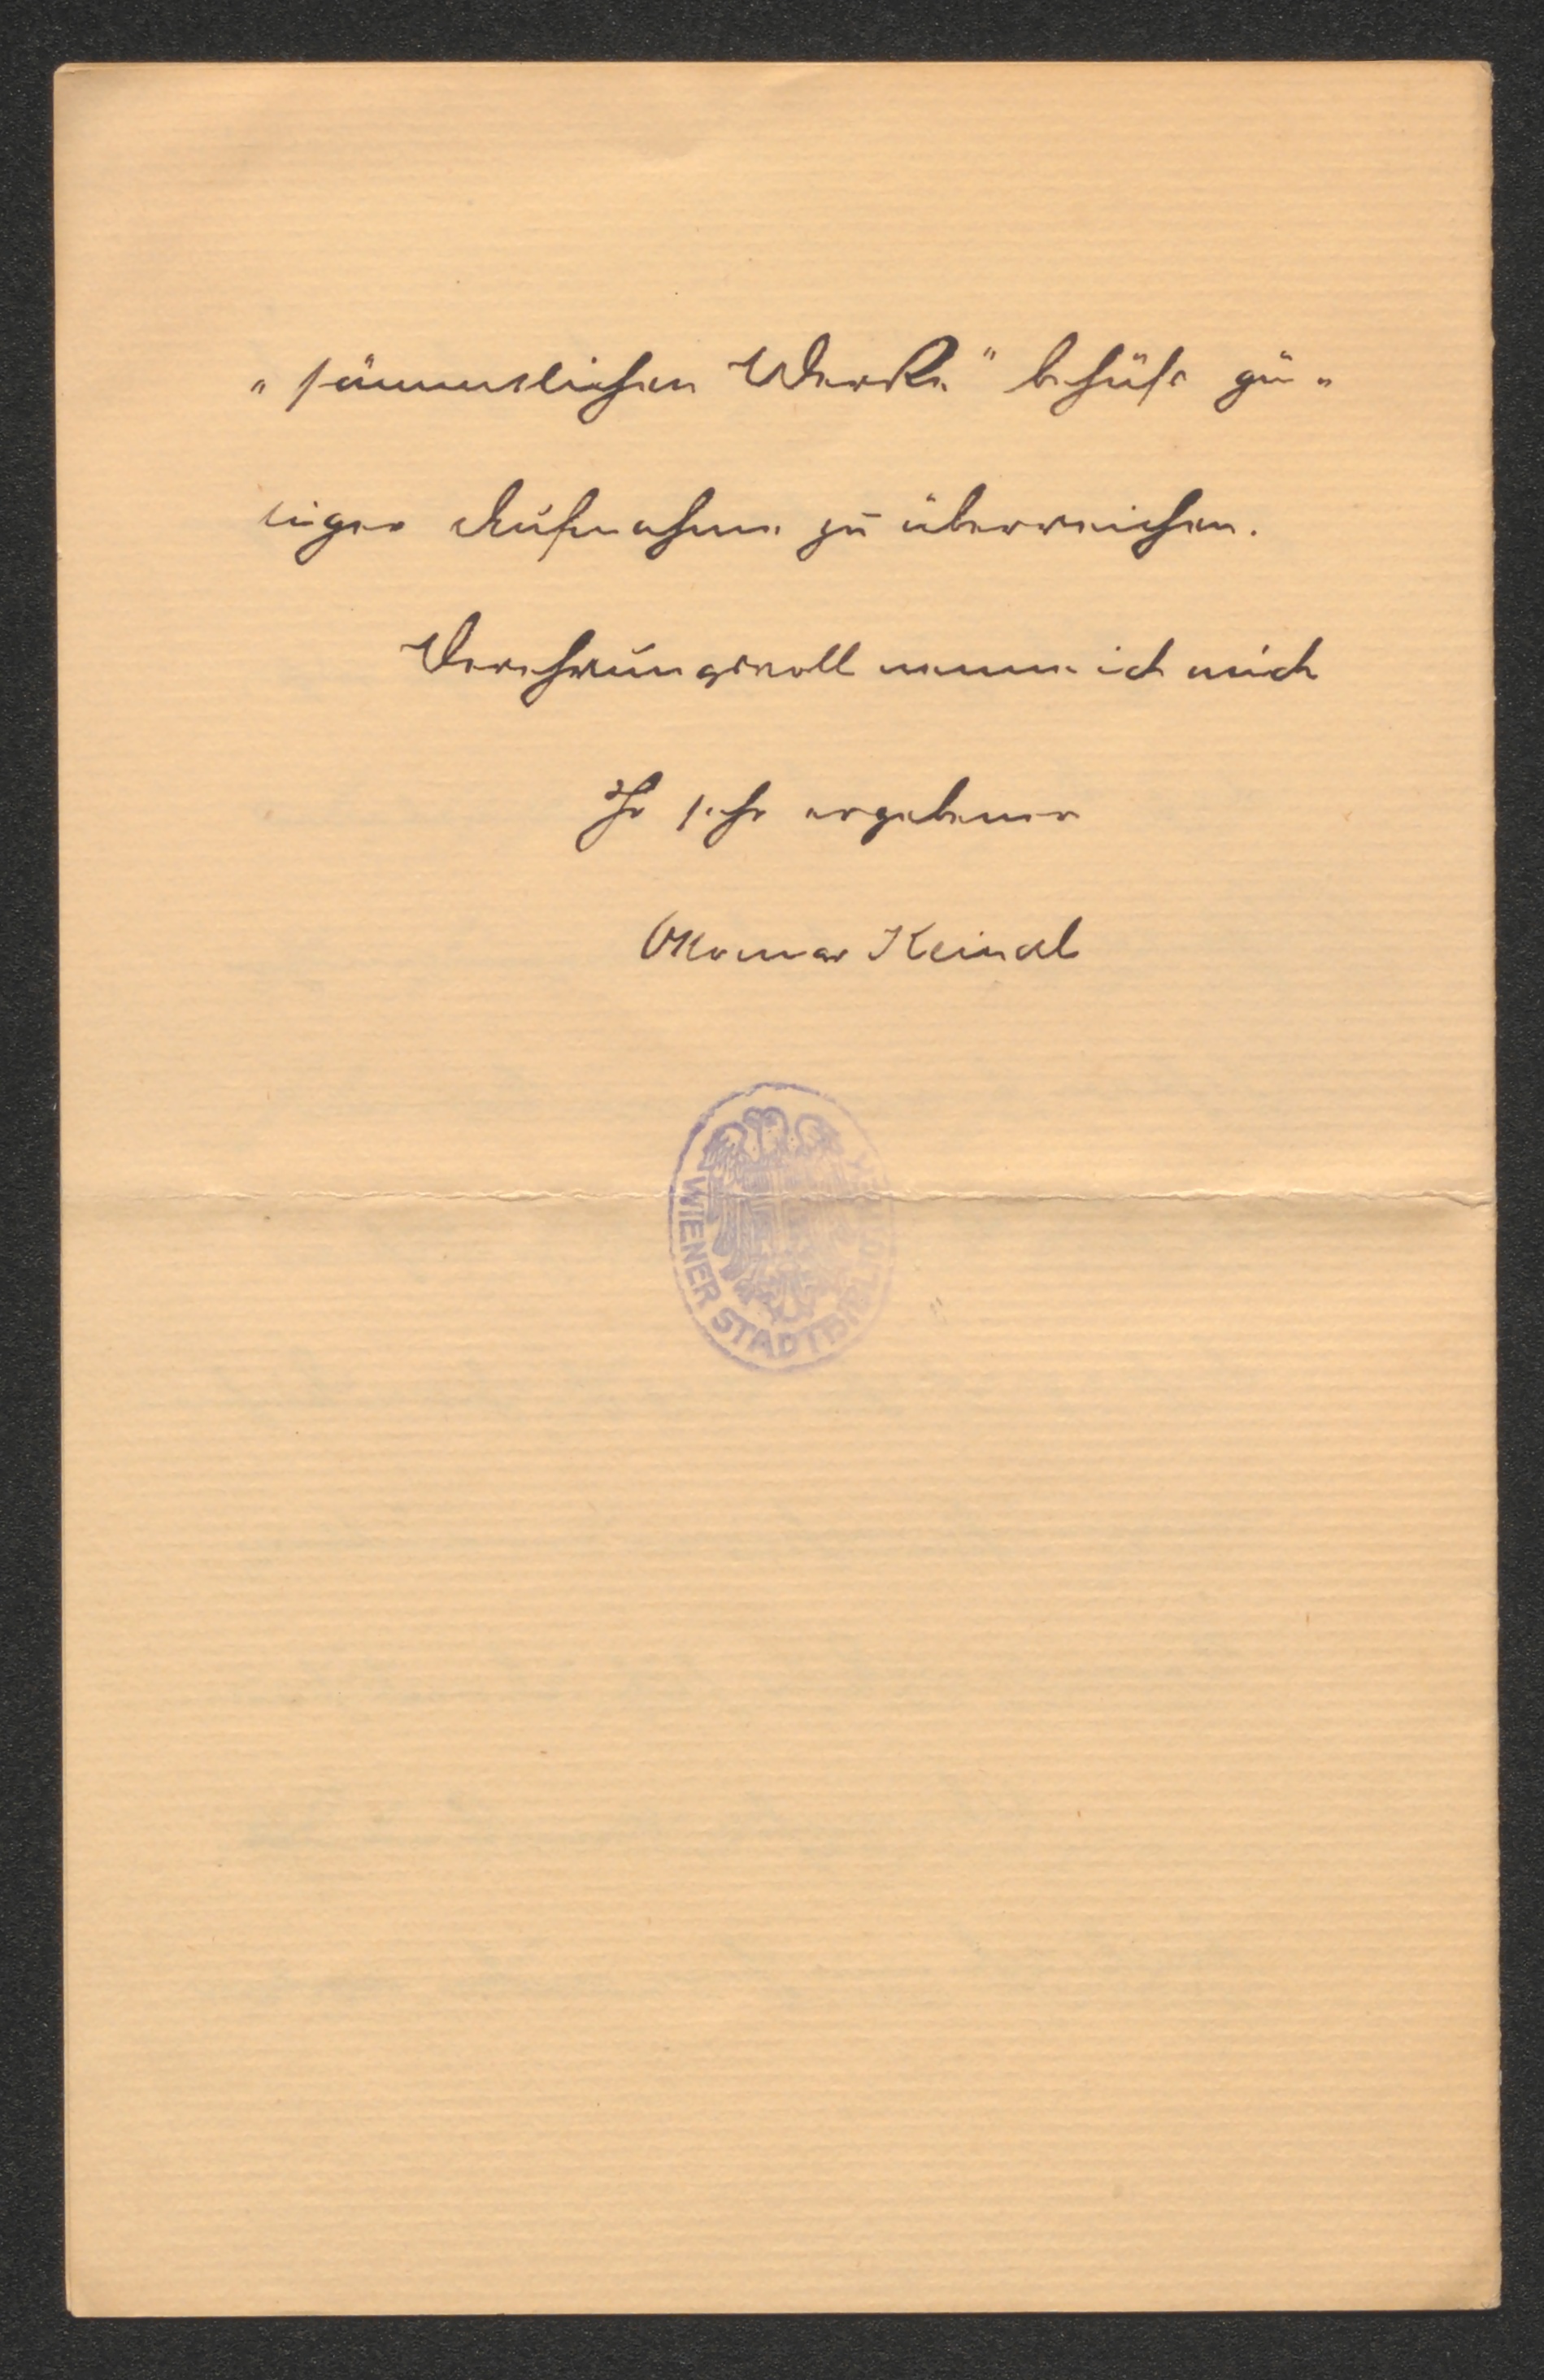 „sämmtlichen Werke" behufs gü-
tiger Aufnahme zu überreichen.
Verehrungsvoll nenne ich mich
Ihr sehr ergebener
Ottomar Keindl
WIENER STADTBIBLIOTHEK